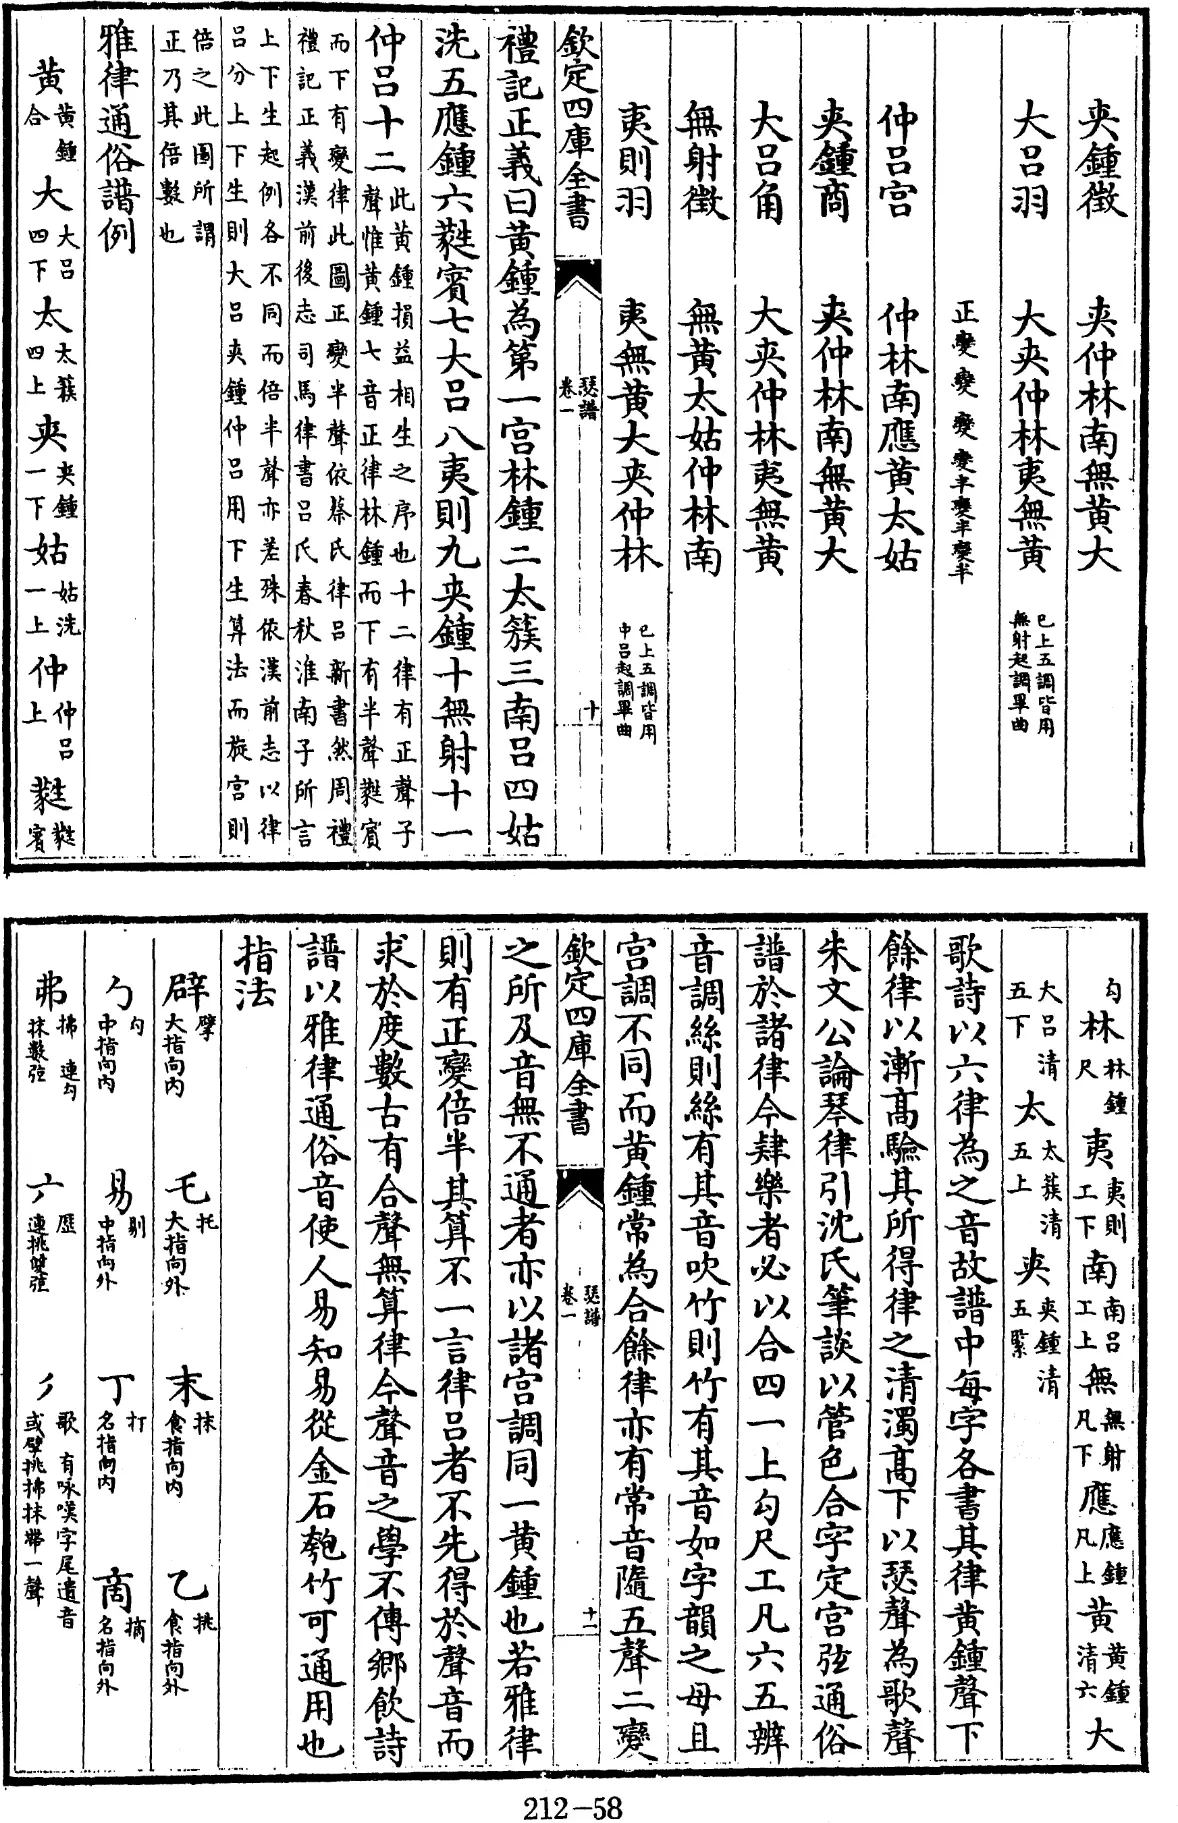 夾鍾徵　夾仲林南無黃大
大呂羽　大夾仲林夷無黃　已上五調皆用
無射起調畢曲
正變變變變半變半變半
仲呂宮　仲林南應黃太姑
夾鍾商　夾仲林南無黃大
大呂角　大夾仲林夷無黃
無射徵　無黃太姑仲林南
夷則羽　夷無黃大夾仲林　已上五調皆用
中呂起調畢曲
欽定四庫全書　瑟譜　卷一　十
禮記正義曰黃鍾為第一宮林鍾二太簇三南呂四姑
洗五應鍾六蕤賓七大呂八夷則九夾鍾十無射十一
仲呂十二　此黃鍾損益相生之序也十二律有正聲子
聲惟黃鍾七音正律林鍾而下有半聲蕤賓
而下有變律此圖正變半聲依蔡氏律呂新書然周禮
禮記正義漢前後志司馬律書呂氏春秋淮南子所言
上下生起例各不同而倍半聲亦差殊依漢前志以律
呂分上下生則大呂夾鍾仲呂用下生算法而旋宮則
倍之此圖所謂
正乃其倍數也
雅律通俗譜例
黃　黃鍾合　大　大呂四下　太　太簇四上　夾　夾鍾一下　姑　姑洗一上　仲　仲呂上　蕤　蕤賓
勾　林　林鍾尺　夷　夷則工下　南　南呂工上　無　無射凡下　應　應鍾凡上　黃　黃鍾清六　大
大呂清五下　太　太簇清五上　夾　夾鍾清五緊
歌詩以六律為之音故譜中每字各書其律黃鍾聲下
餘律以漸高驗其所得律之清濁高下以瑟聲為歌聲
朱文公論琴律引沈氏筆談以管色合字定宮弦通俗
譜於諸律今肄樂者必以合四一上勾尺工凡六五辨
音調絲則絲有其音吹竹則竹有其音如字韻之母且
宮調不同而黃鍾常為合餘律亦有常音隨五聲二變
欽定四庫全書　瑟譜　卷一　十一
之所及音無不通者亦以諸宮調同一黃鍾也若雅律
則有正變倍半其算不一言律呂者不先得於聲音而
求於度數古有合聲無算律今聲音之學不傳鄉飲詩
譜以雅律通俗音使人易知易從金石匏竹可通用也
指法
辟　擘　大指向內　乇　托　大指向外　末　抹　食指向內　乙　挑　食指向外
勹　勾　中指向內　易　剔　中指向外　丁　打　名指向內　啇　摘　名指向外
弗　拂　連勾抹數弦　歷　連挑雙弦　歌　有咏嘆字尾遺音或擘挑拂抹帶一聲
212-58